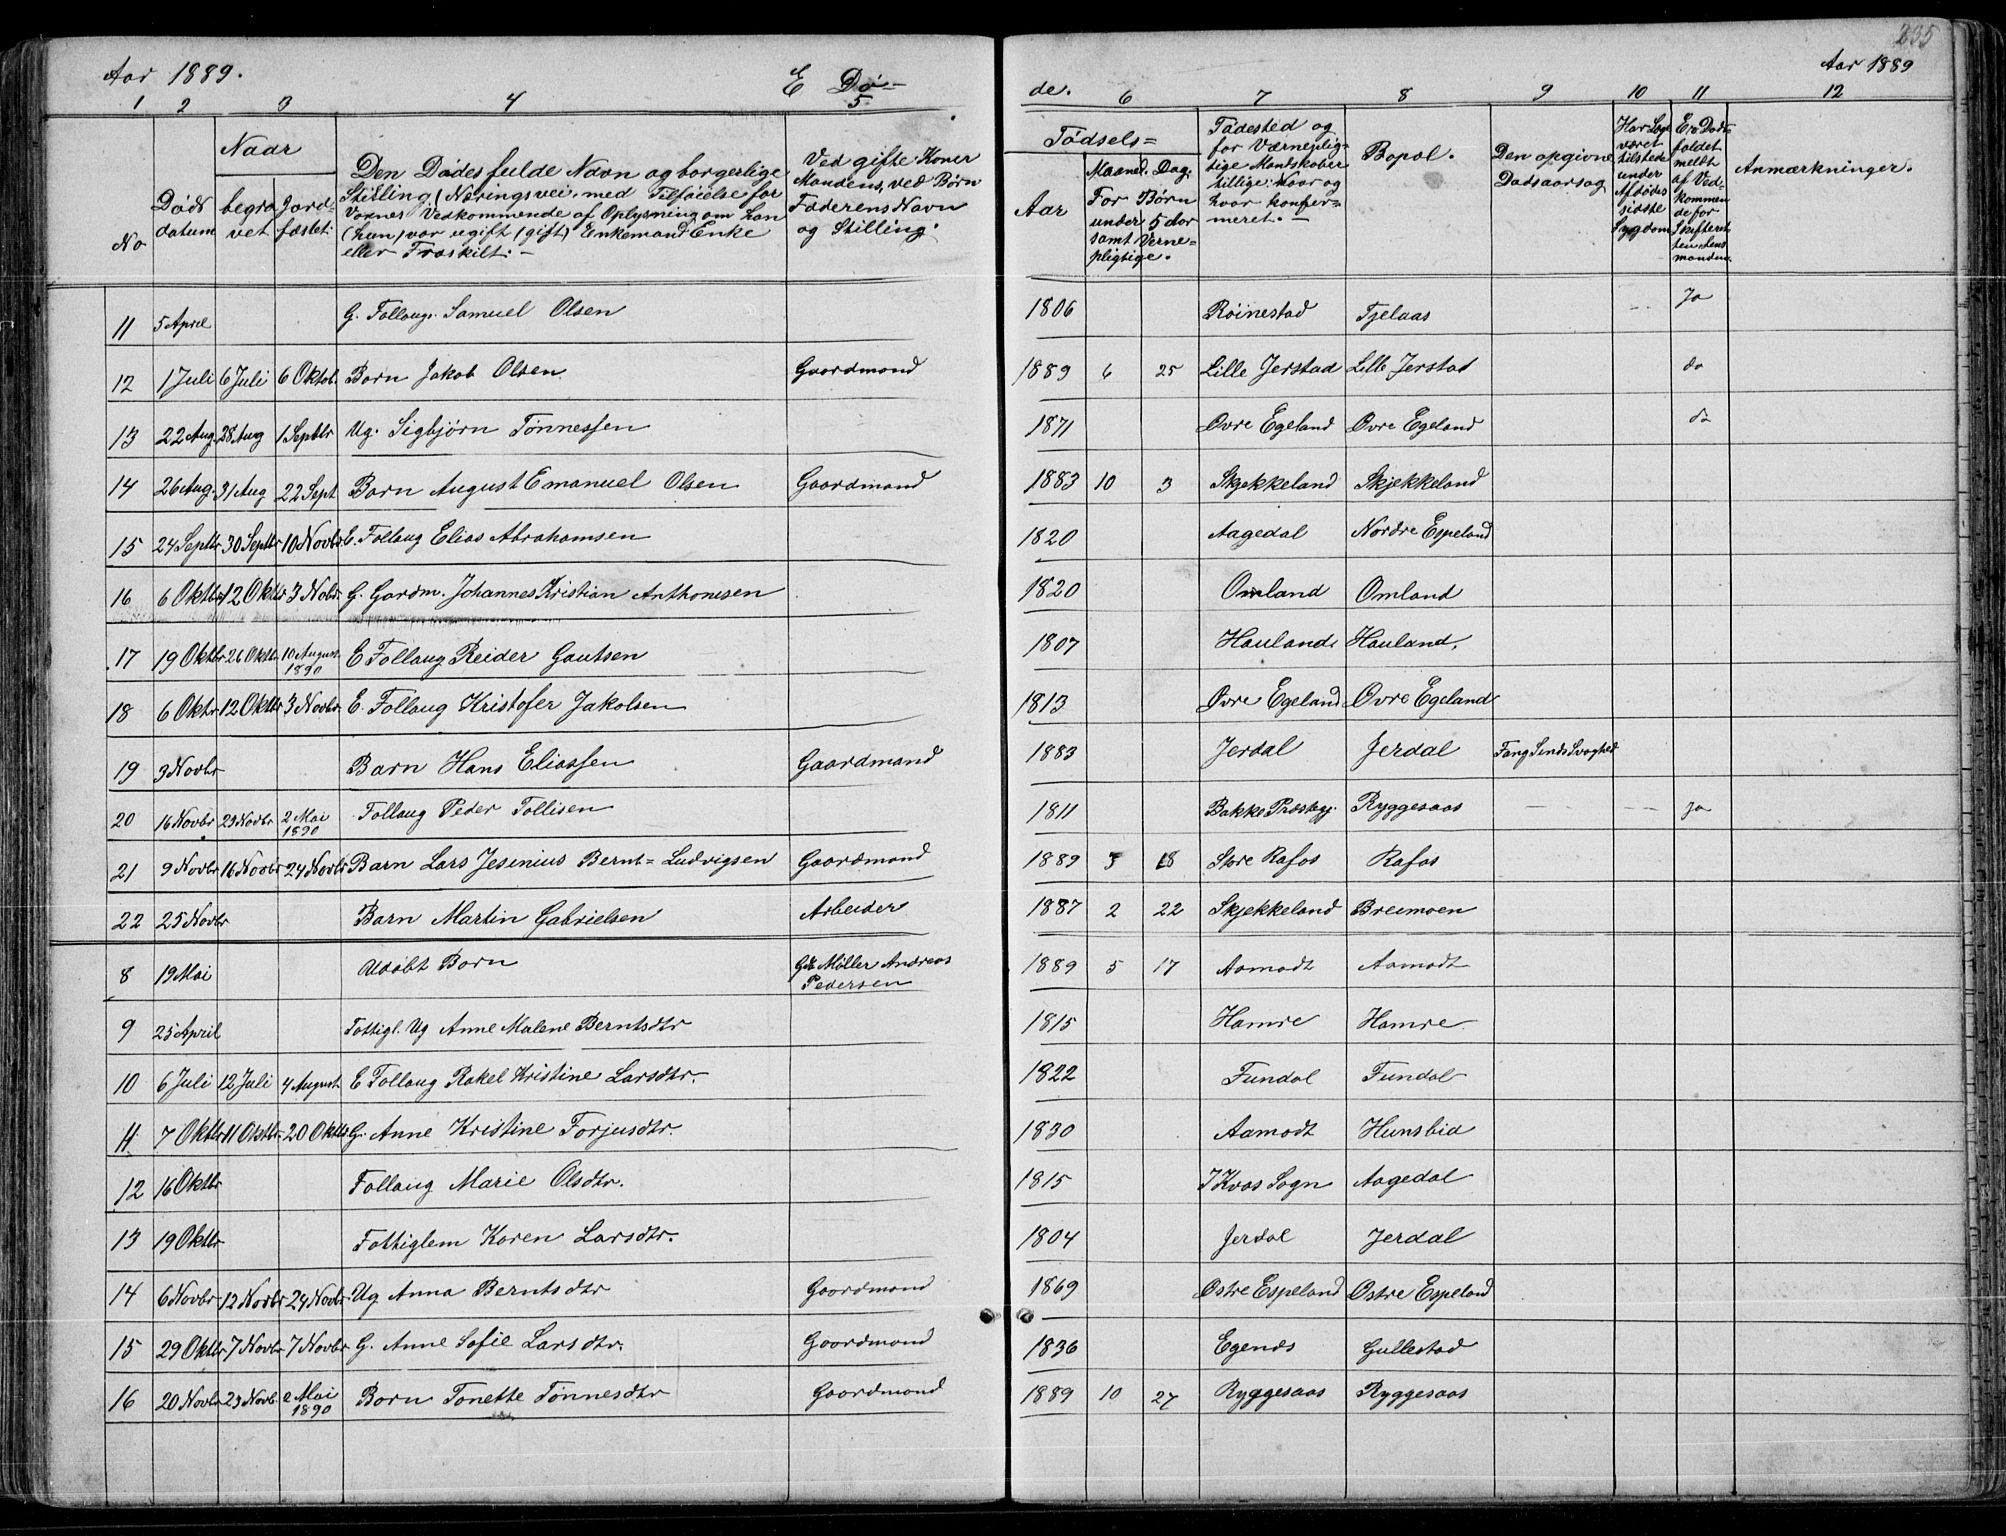 235
Aar 1889.
E Dø-
de.
Aar 1889
1 2 3 4 5. 6 7 8 9 10 11 12
No
Døds
datum
Naar
begra
vet
Jord-
fæstet:
Den Dødes fulde Navn og borgerlige
Stilling (Næringsvei, med Tilføielse for
Voxnes Vedkommende af Oplysning om han
(hun) var ugift (gift) Enkemand Enke
eller Fraskilt: -
Ved gifte Koner
Mandens, ved Børn
Faderens Navn
og Stilling.
Fødsels=
Aar
Maaned. Dag:
For Børn
under 5 Aar
samt Verne=
pligtige.
Fødested og
for Værneplig-
tige Mandskaber
tillige: Naar og
hvor konfir-
meret. -
Bopæl.
Den opgivne
Dødsaarsag
Har Læge
været
tilstede
under
Afdødes
sidste
Sygdom
Er Døds-
faldet
meldt
af Ved-
kommen
de for
Skifteret
ten
manden.
Anmærkninger.
11 5 April G. Follaug. Samuel Olsen 1806 Røinestad Fjelaas Ja
12 1 Juli 6 Juli 6 Oktob. Barn Jakob Olsen. Gaardmand 1889 6 25 Lille Jerstad Lille Jerstad do
13 22 Aug. 28 Aug 1 Septbr Ug. Sigbjørn Tønnessen 1871 Øvre Egeland Øvre Egeland do
14 26 Aug. 31 Aug 22 Sept Barn August Emanuel Olsen Gaardmand 1883 10 3 Skjekkeland Skjekkeland
15 24 Septbr 30 Septbr 10 Novbr. E. Follaug Elias Abrahamsen 1820 Aagedal Nordre Espeland
16 6 Oktbr 12 Oktbr 3 Nobr. G. Gardm. Johannes Kristian Anthonesen 1820 Omland Omland
17 19 Oktbr 26 Oktbr. 10 August. 1890 E Follaug Reider Gautsen 1807 Hauland Hauland.
18 6 Oktr 12 Oktbr 3 Novbr. E. Follaug Kristofer Jakobsen 1813 Øvre Egeland Øvre Egeland
19 3 Novbr Barn Hans Eliassen Gaardmand 1883 Jerdal Jerdal
20 16 Novbr 23 Novbr 2 Mai 1890 Follaug Peder Tollisen 1811 Bakke Præstegj. Ryggesaas Ja
21 9 Novbr 16 Novbr 24 Novbr Barn Lars Jesinius Bernt= Ludvigsen Gaardmand 1889 3 18 Store Rafos Rafos
22 25 Novbr Barn Martin Gabrielsen Arbeider 1887 2 22 Skjekkeland Breimoen
8 19 Mai Udøbt Barn Møller Andreas
Pedersen 1889 5 17 Aamodt Aamodt
9 25 April Fattigl. Ug Anne Malene Berntsdtr 1815 Hamre Hamre
10 6 Juli 12 Juli 4 August. E Follaug Rakel Kristine Larsdtr. 1822 Fundal Fundal
11. 7 Oktbr 11 Oktbr. 20 Oktbr. G. Anne Kristine Torjusdtr. 1830 Aamodt Hunsbid
12 16 Oktbr Follaug Marie Olsdtr. 1815 I Kvas Sogn Aagedal
13 19 Oktbr Fattiglem Karen Larsdtr. 1804 Jerdal Jerdal
14 6 Novbr 12 Novbr 24 Novbr. Ug. Anna Berntsdtr Gaardmand 1869 Østre Espeland Østre Espeland
15 29 Oktbr 7 Novbr 7 Novbr G. Anne Sofie Larsdtr. Gaardmand 1836 Egends Gullestad
16 20 Novbr 23 Novb. 2 Mai 1890 Barn Tonette Tønnesdtr Gaardmand 1889 10 27 Ryggesaas Ryggesaas